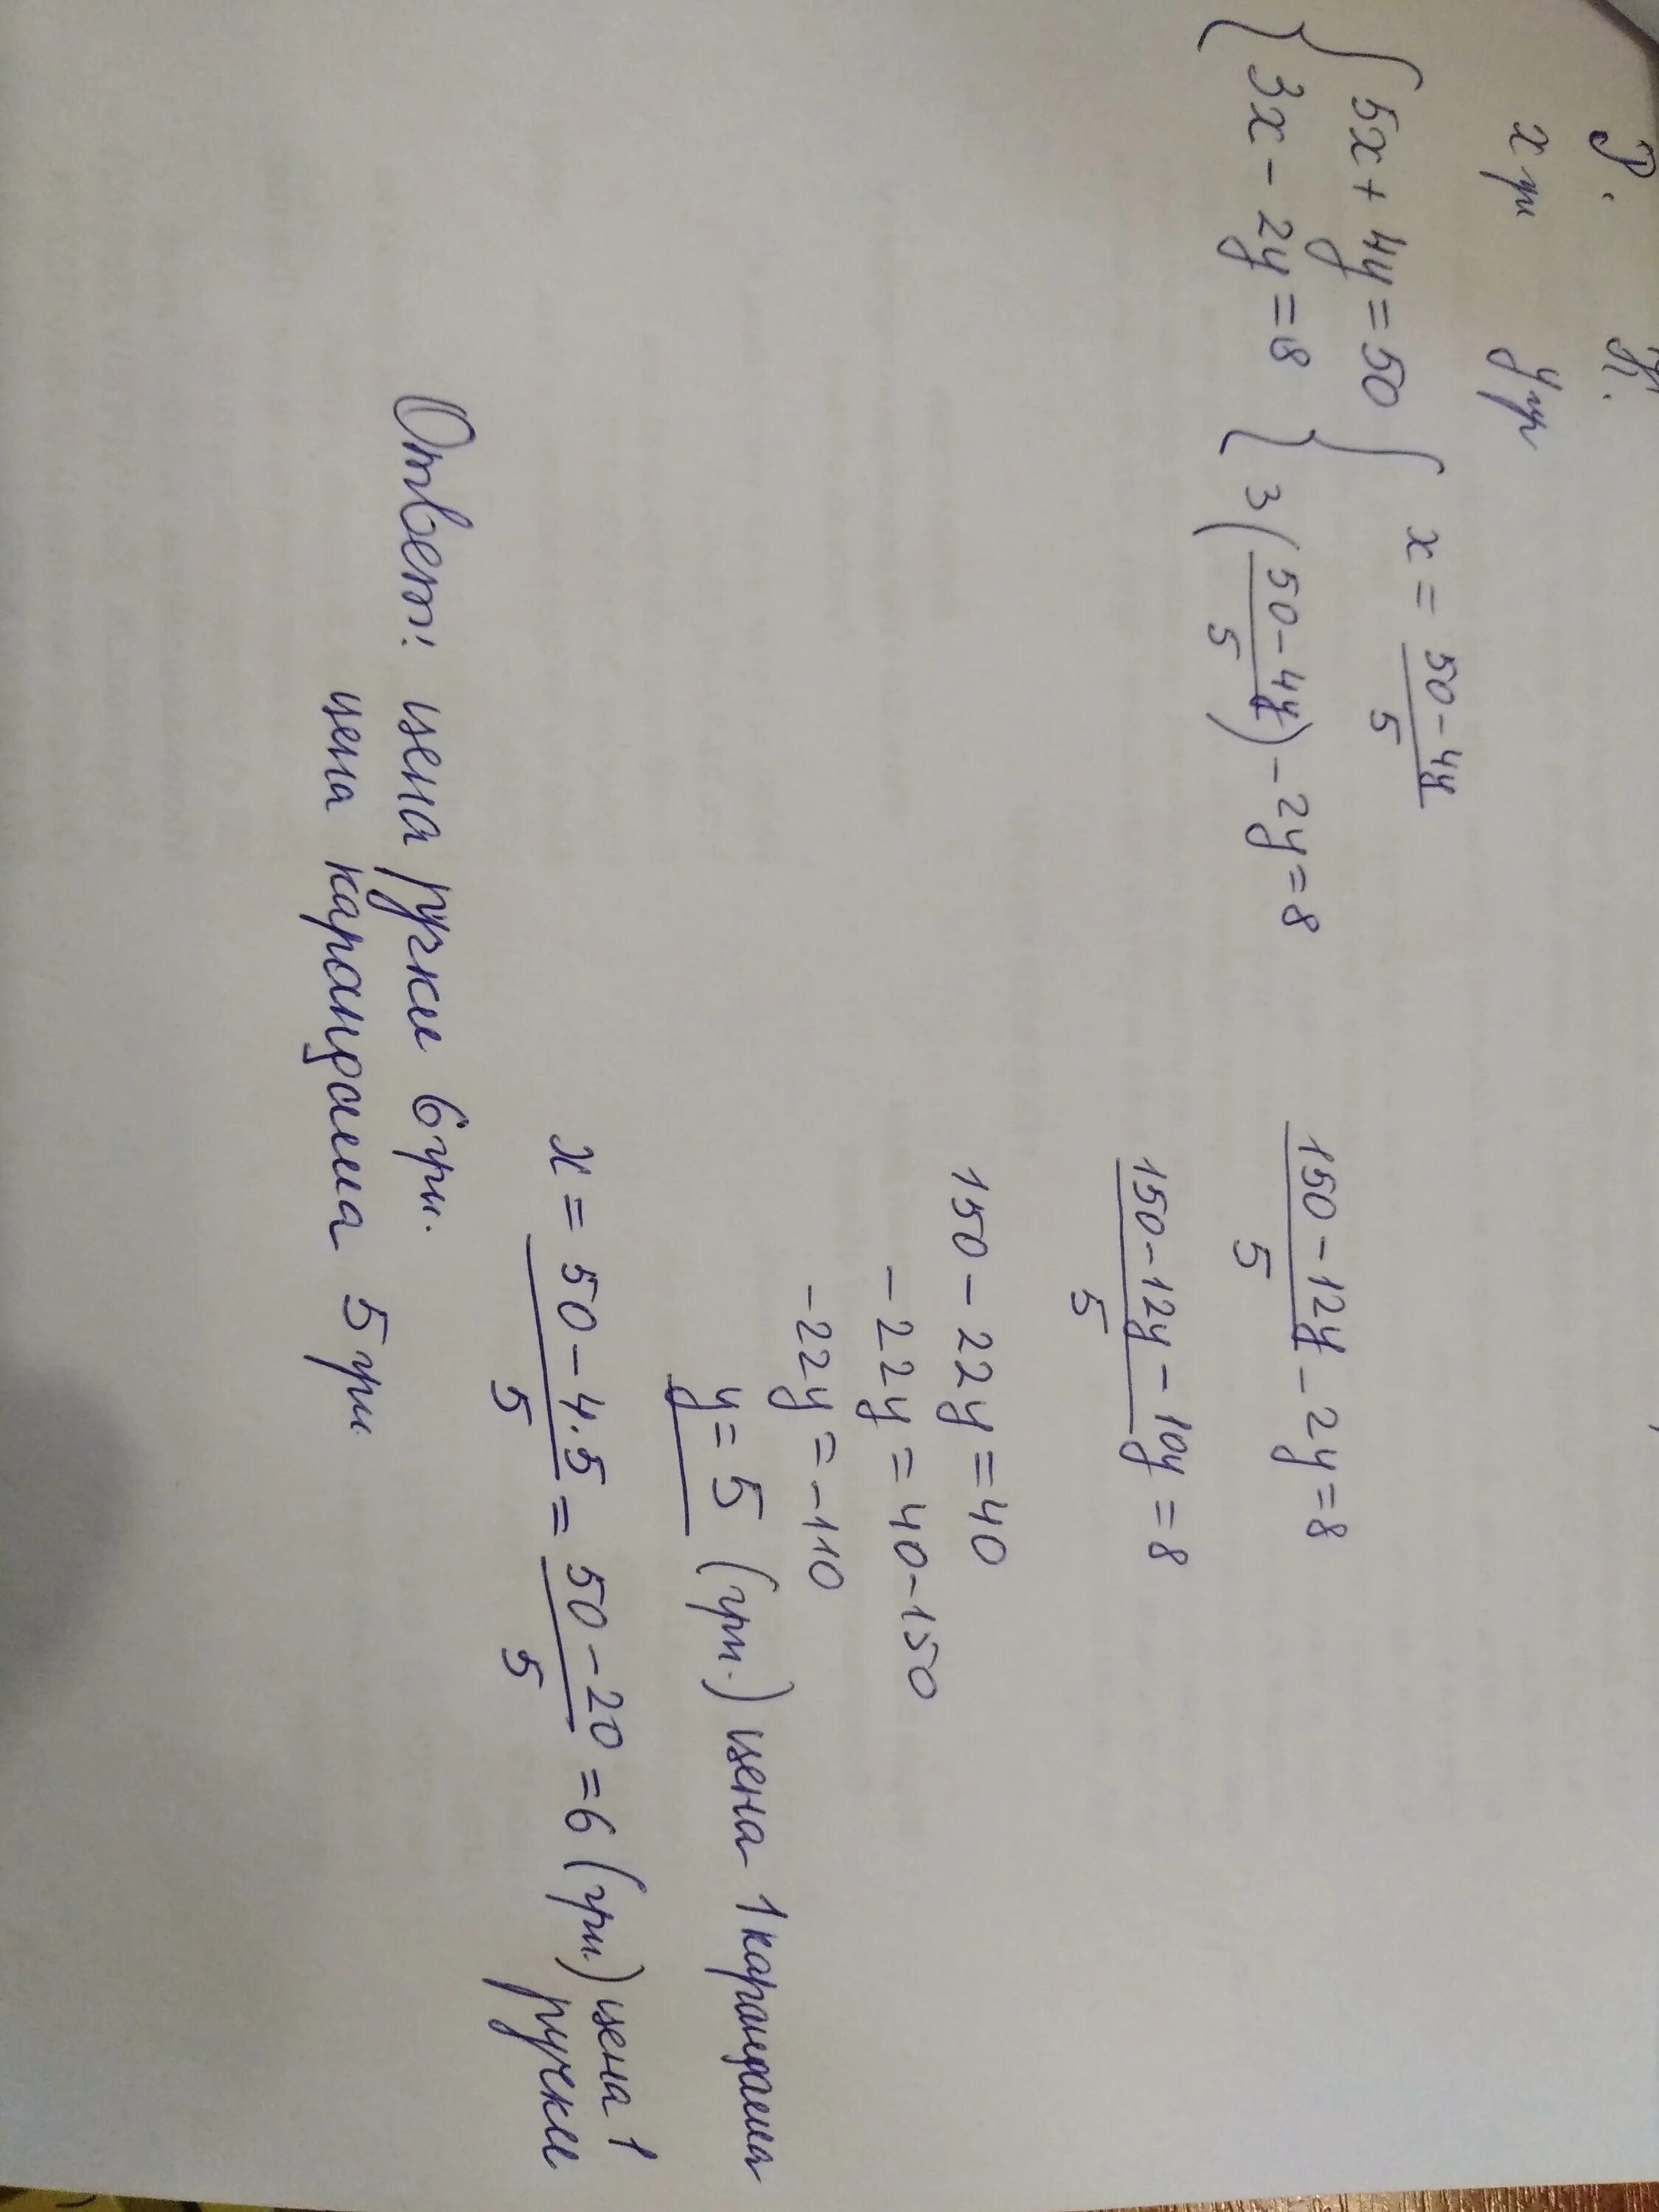 Р. К.
х грн у гр
{ 5х + 4у = 50
{ 3х - 2у = 8
{ х = (50 - 4у)/5
{ 3((50 - 4у)/5) - 2у = 8
(150 - 12у)/5 - 2у = 8
(150 - 12у - 10у)/5 = 8
150 - 22у = 40
-22у = 40 - 150
-22у = -110
у = 5 (грн.) цена 1 карандаша
х = (50 - 4.5)/5 = (50 - 20)/5 = 6 (грн.) цена 1 ручки
Ответ: цена ручки 6 грн.
цена карандаша 5 грн.